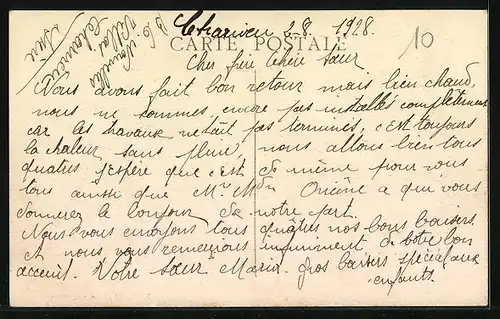 Charvieu 2-8. 1928.
CARTE POSTALE
10
Cher frère Chère Sœur
Nous avons fait bon retour mais bien chaud,
nous ne sommes encore pas installés complètement
car les travaux netait pas terminés, c'est toujours
la chaleur sans pluie, nous allons bien tous
quatres j'espère que c'est de même pour vous
tous ainsi que Mr Mdm a qui vous
donnerez le bonjour de notre part.
Nous vous envoyons tous quatres nos bons baisers
et nous vous remercions infiniment de votre bon
acceuil. Votre sœur Maria. gros baisers spécial aux
enfants.
Nouvelles
Villas
Isère